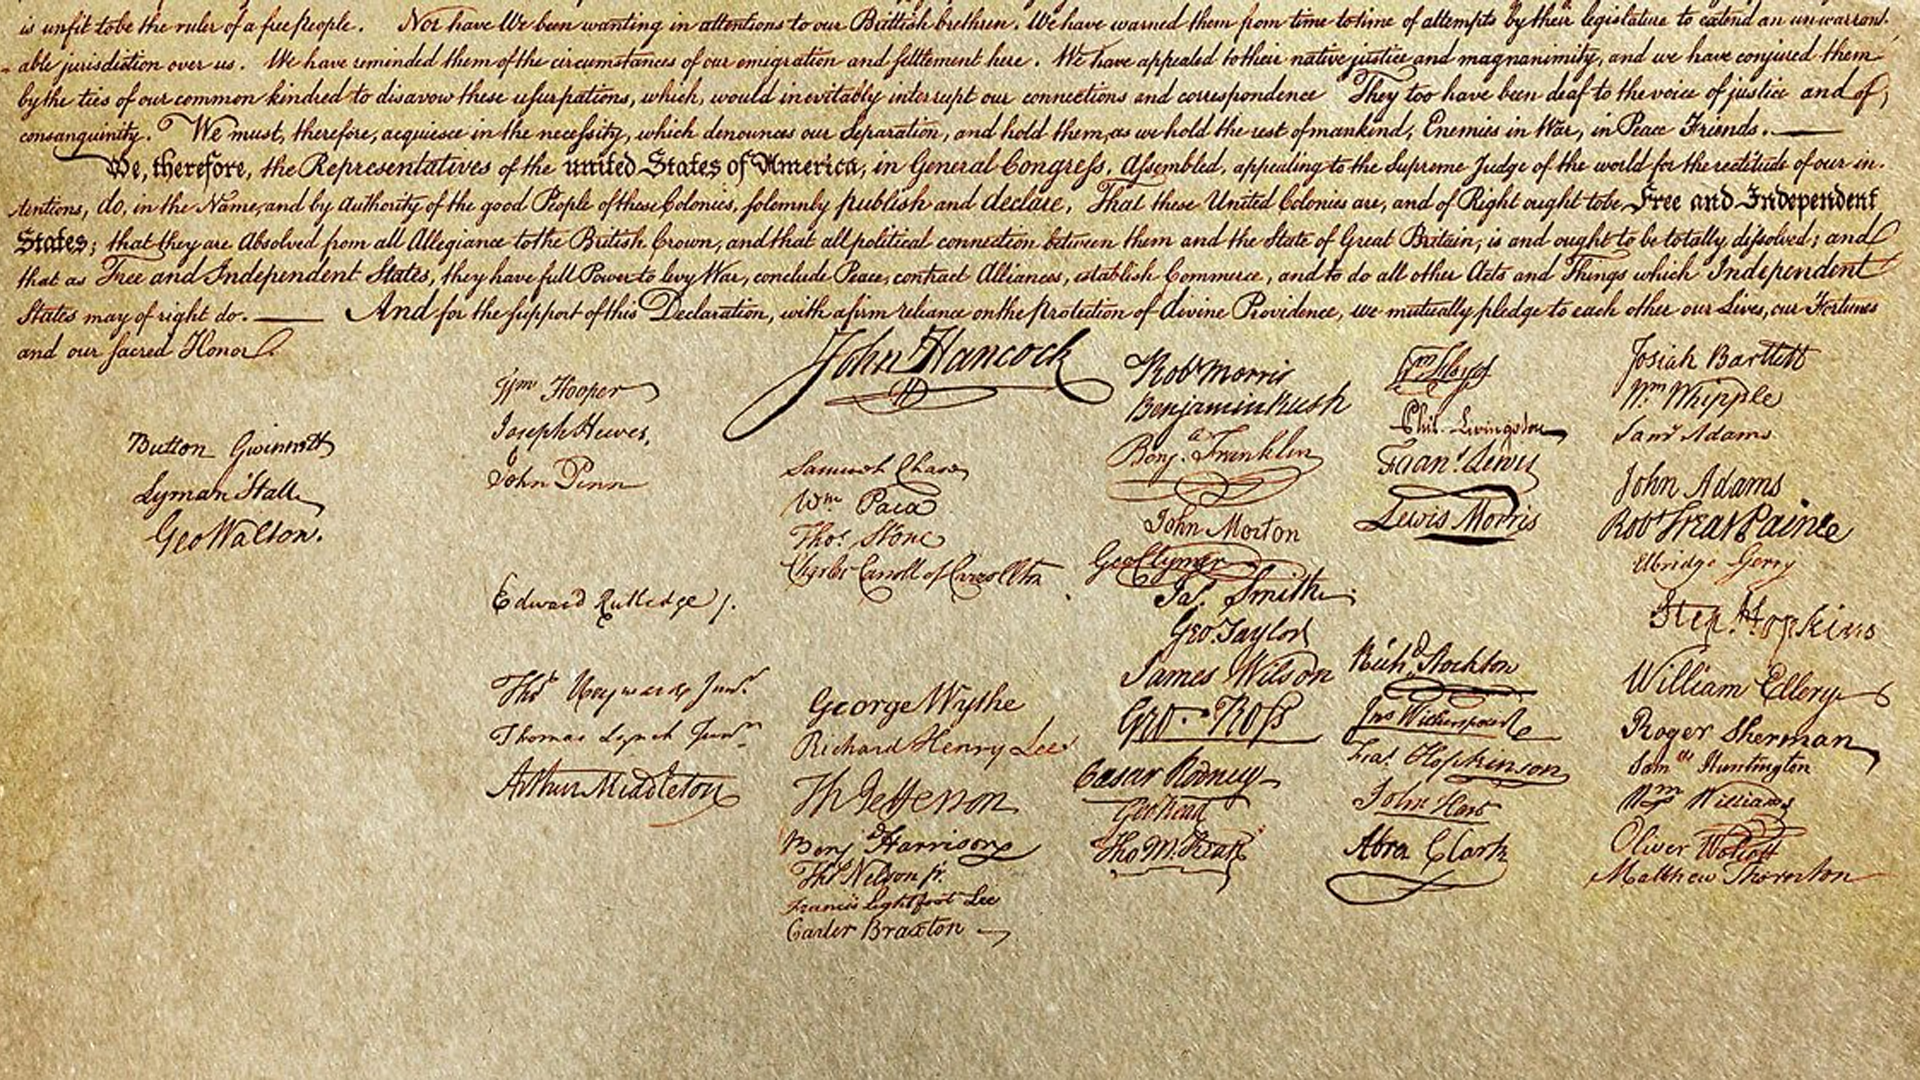 is unfit to be the ruler of a free people. Nor have We been wanting in attentions to our Brittish brethren. We have warned them from time to time of attempts by their legislature to extend an unwarrant-
able jurisdiction over us. We have reminded them of the circumstances of our emigration and settlement here. We have appealed to their native justice and magnanimity, and we have conjured them
by the ties of our common kindred to disavow these usurpations, which, would inevitably interrupt our connections and correspondence They too have been deaf to the voice of justice and of
consanguinity. We must, therefore, acquiesce in the necessity, which denounces our Separation, and hold them, as we hold the rest of mankind, Enemies in War, in Peace Friends.
We, therefore, the Representatives of the united States of America, in General Congress, Assembled, appealing to the Supreme Judge of the world for the rectitude of our in-
tentions, do, in the Name, and by Authority of the good People of these Colonies, solemnly publish and declare, That these United Colonies are, and of Right ought to be Free and Independent
States; that they are Absolved from all Allegiance to the British Crown, and that all political connection between them and the State of Great Britain, is and ought to be totally dissolved; and
that as Free and Independent States, they have full Power to levy War, conclude Peace, contract Alliances, establish Commerce, and to do all other Acts and Things which Independent
States may of right do. And for the support of this Declaration, with a firm reliance on the protection of divine Providence, we mutually pledge to each other our Lives, our Fortunes
and our sacred Honor.
Button Gwinnett
Lyman Hall
Geo Walton.
Wm Hooper
Joseph Hewes,
John Penn
Edward Rutledge /.
Thos Heyward Junr.
Thomas Lynch Junr.
Arthur Middleton
John Hancock
Samuel Chase
Wm Paca
Thos. Stone
Charles Carroll of Carrollton
George Wythe
Richard Henry Lee
Th Jefferson
Benj Harrison
Thos Nelson jr.
Francis Lightfoot Lee
Carter Braxton
Robt Morris
Benjamin Rush
Benj. Franklin
John Morton
Geo Clymer
Jas. Smith
Geo. Taylor
James Wilson
Geo. Ross
Caesar Rodney
Geo Read
Tho M:Kean
Wm Floyd
Phil. Livingston
Frans. Lewis
Lewis Morris
Richd. Stockton
Jno Witherspoon
Fras. Hopkinson
John Hart
Abra Clark
Josiah Bartlett
Wm Whipple
Saml Adams
John Adams
Robt Treat Paine
Elbridge Gerry
Step. Hopkins
William Ellery
Roger Sherman
Saml Huntington
Wm Williams
Oliver Wolcott
Matthew Thornton